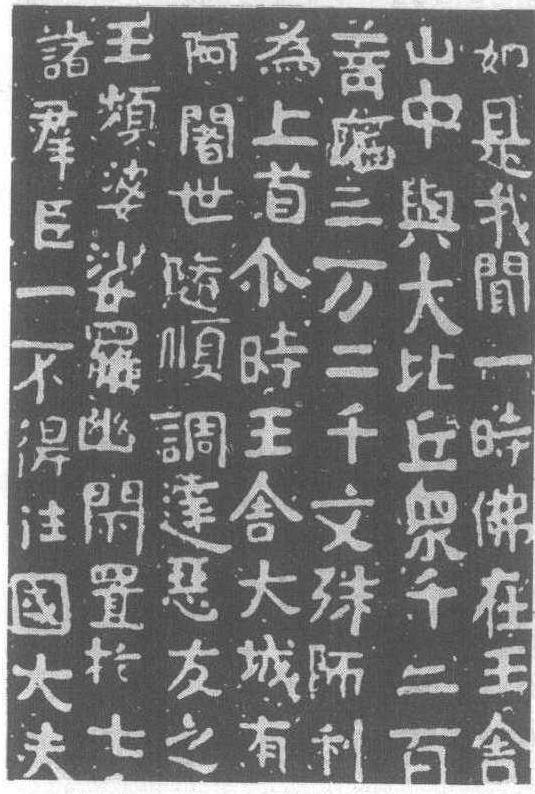 如是我聞一時佛在王舍
山中與大比丘衆千二百
菩薩三万二千文殊師利
為上首尒時王舍大城有
阿闍世隨順調達惡友之
王頻婆娑羅幽閉置於七
諸羣臣一不得往國大夫